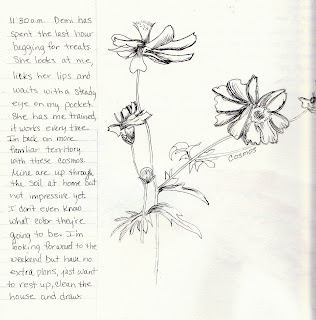 11:30 a.m. Demi has
spent the last hour
begging for treats.
She looks at me,
licks her lips and
waits with a steady
eye on my pocket.
She has me trained,
it works every time.
I'm back on more
familiar territory
with these cosmos.
Mine are up through
the soil at home but
not impressive yet.
I don't even know
what color they're
going to be. I'm
looking forward to the
weekend but have no
extra plans, just want
to rest up, clean the
house and draw.
cosmos